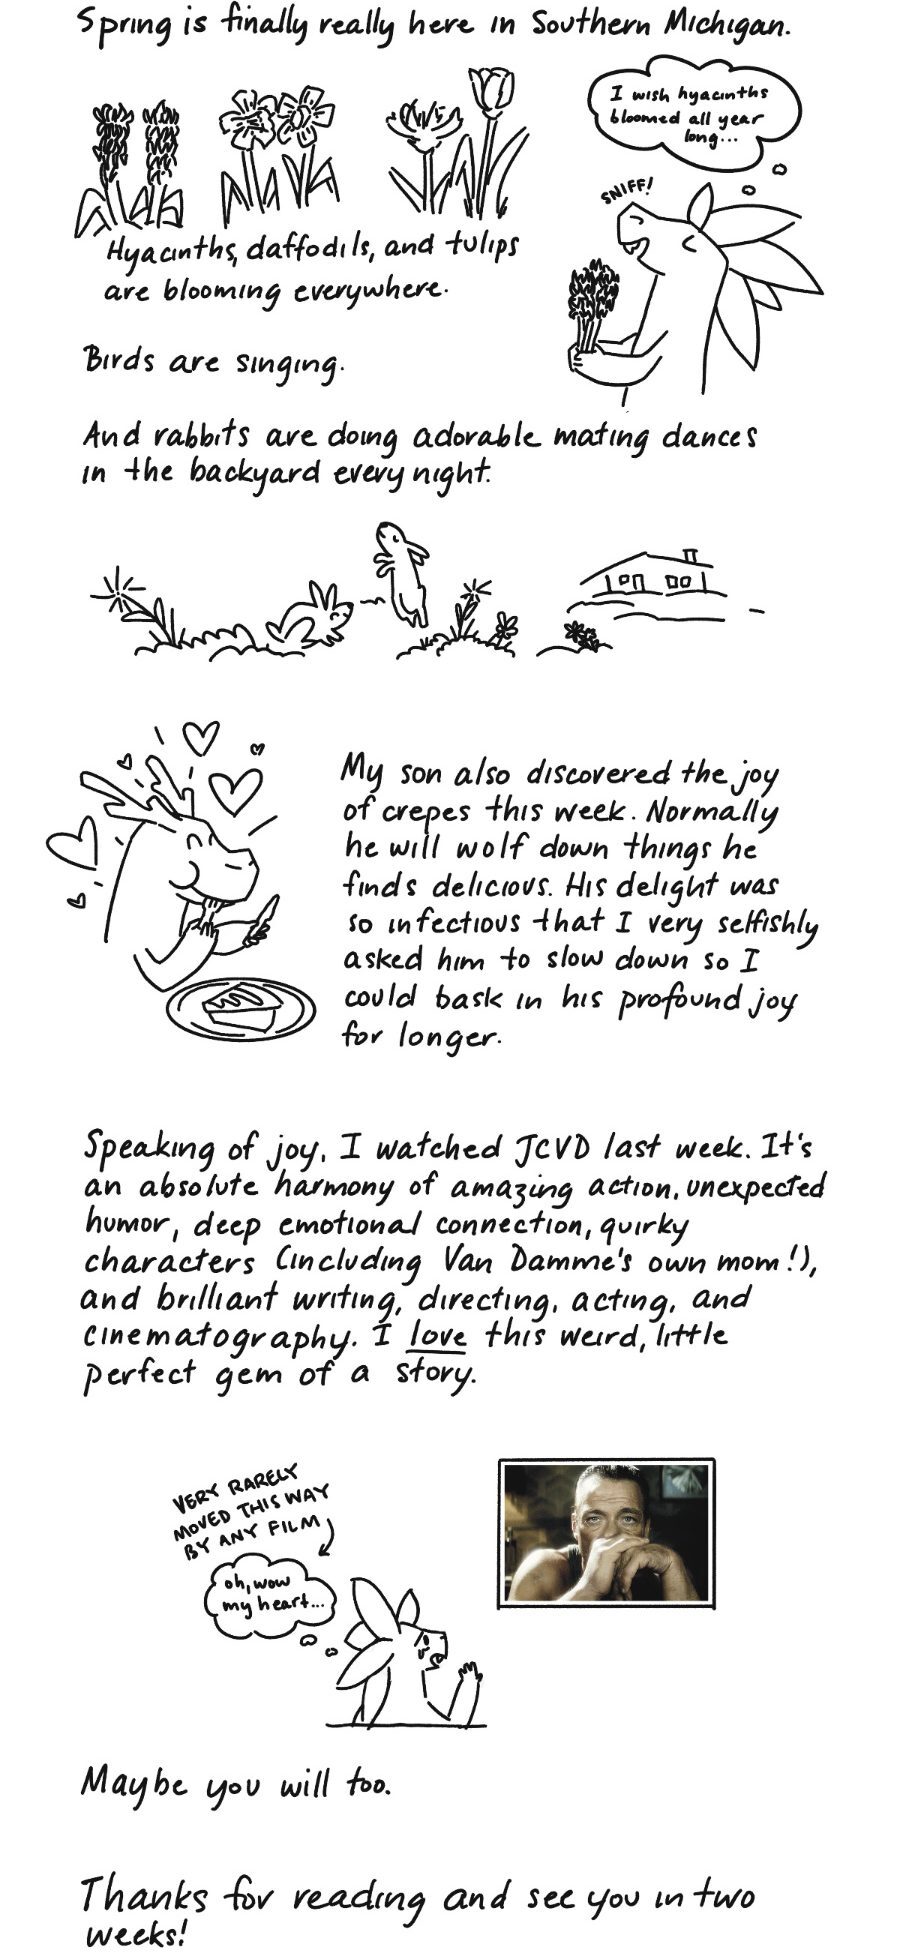 Spring is finally really here in Southern Michigan.
I wish hyacinths
bloomed all year
long...
SNIFF!
Hyacinths, daffodils, and tulips
are blooming everywhere.
Birds are singing.
And rabbits are doing adorable mating dances
in the backyard every night.
My son also discovered the joy
of crepes this week. Normally
he will wolf down things he
finds delicious. His delight was
so infectious that I very selfishly
asked him to slow down so I
could bask in his profound joy
for longer.
Speaking of joy, I watched JCVD last week. It's
an absolute harmony of amazing action, unexpected
humor, deep emotional connection, quirky
characters (including Van Damme's own mom!),
and brilliant writing, directing, acting, and
cinematography. I love this weird, little
perfect gem of a story.
VERY RARELY
MOVED THIS WAY
BY ANY FILM
oh, wow
my heart...
Maybe you will too.
Thanks for reading and see you in two
weeks!